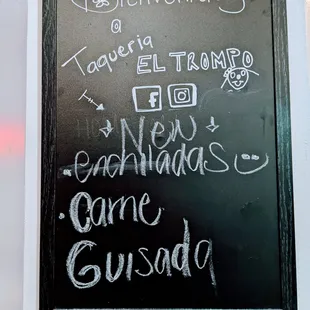 Bienvenidos
a
Taqueria
EL TROMPO
f
New
enchiladas
Carne
Guisada